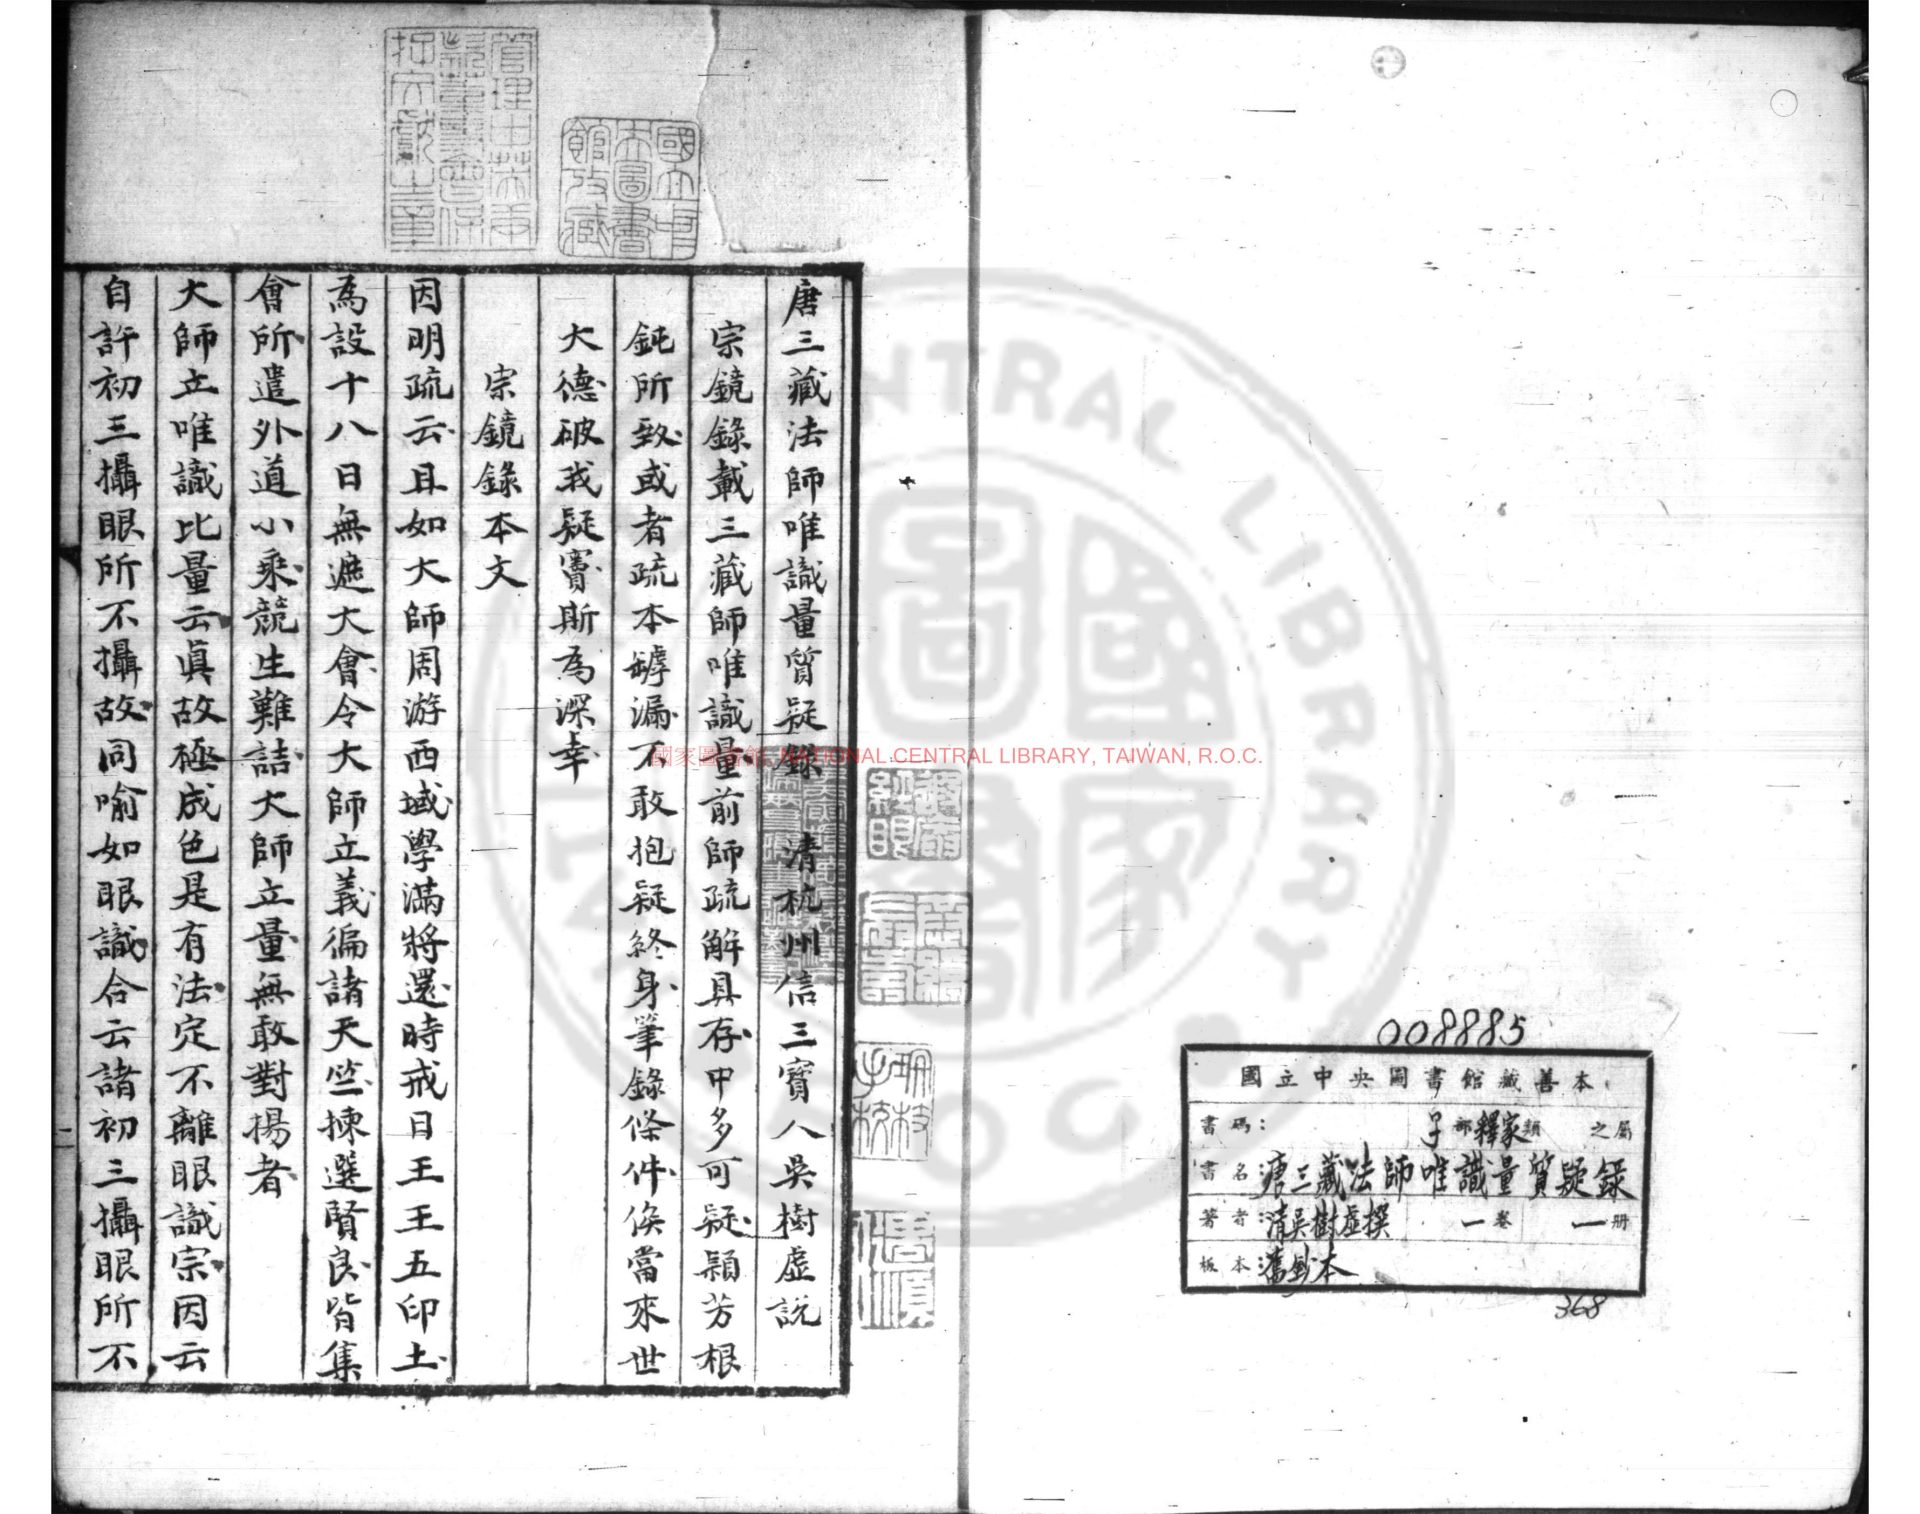 008885
國立中央圖書館藏善本
書碼： 子部釋家類之屬
書名：唐三藏法師唯識量質疑錄
著者：清吳樹虛撰 一卷 一册
板本：舊鈔本
368
唐三藏法師唯識量質疑錄 清杭州信三寶人吳樹虛說
宗鏡錄載三藏師唯識量前師疏解具存中多可疑顓芳根
鈍所致或者疏本罅漏不敢抱疑終身筆錄條件俟當來世
大德破我疑竇斯為深幸
宗鏡錄本文
因明疏云且如大師周游西域學滿將還時戒日王王五印土
為設十八日無遮大會令大師立義徧諸天竺揀選賢良皆集
會所遣外道小乘競生難詰大師立量無敢對揚者
大師立唯識比量云眞故極成色是有法定不離眼識宗因云
自許初三攝眼所不攝故同喻如眼識合云諸初三攝眼所不
國家圖書館, NATIONAL CENTRAL LIBRARY, TAIWAN, R.O.C.
國立中央圖書館攷藏
管理中英庚款董事會保存文獻之章